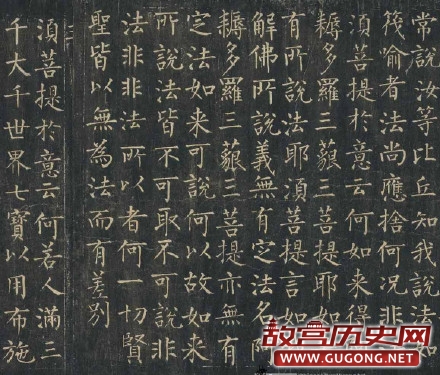 常說汝等比丘知我說法如
筏喻者法尚應捨何況非
須菩提於意云何如來得
耨多羅三藐三菩提耶如
有所說法耶須菩提言如
解佛所說義無有定法名
耨多羅三藐三菩提亦無有
定法如來可說何以故如來
所說法皆不可取不可說非
法非非法所以者何一切賢
聖皆以無為法而有差別
須菩提於意云何若人滿三
千大千世界七寶以用布施
故宫历史网
www.GUGONG.net